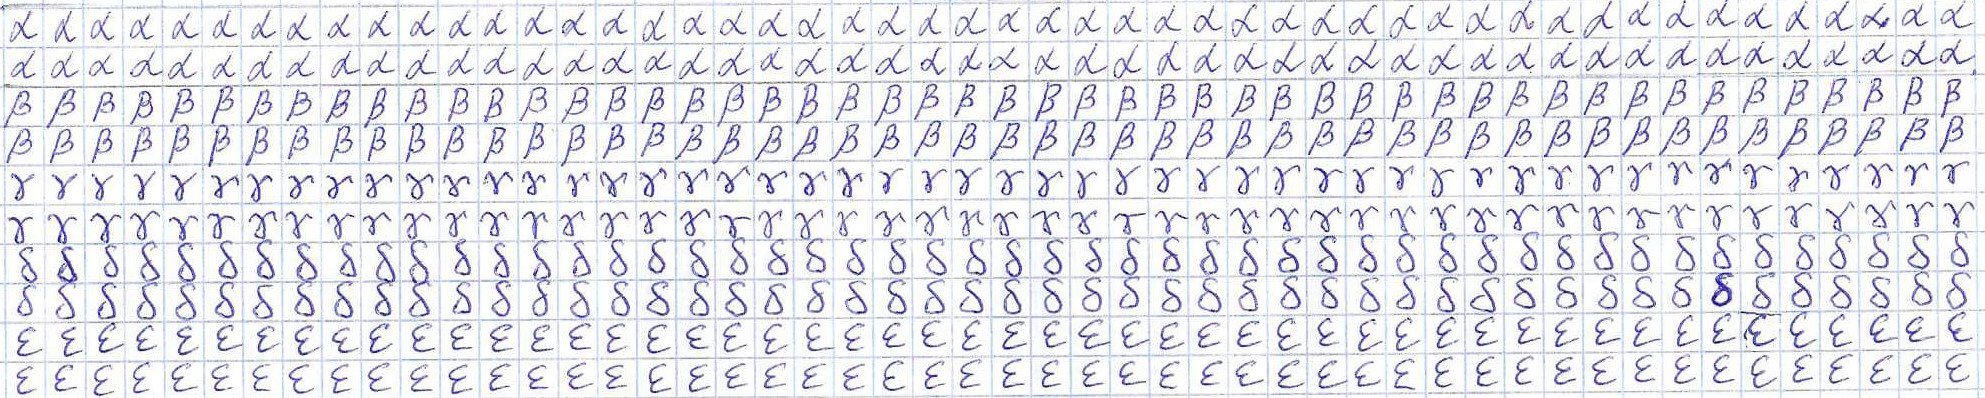 α α α α α α α α α α α α α α α α α α α α α α α α α α α α α α α α α α α α α α α α α α α α α α α α α α
α α α α α α α α α α α α α α α α α α α α α α α α α α α α α α α α α α α α α α α α α α α α α α α α α α
β β β β β β β β β β β β β β β β β β β β β β β β β β β β β β β β β β β β β β β β β β β β β β β β β β
β β β β β β β β β β β β β β β β β β β β β β β β β β β β β β β β β β β β β β β β β β β β β β β β β β
γ γ γ γ γ γ γ γ γ γ γ γ γ γ γ γ γ γ γ γ γ γ γ γ γ γ γ γ γ γ γ γ γ γ γ γ γ γ γ γ γ γ γ γ γ γ γ γ γ γ
γ γ γ γ γ γ γ γ γ γ γ γ γ γ γ γ γ γ γ γ γ γ γ γ γ γ γ γ γ γ γ γ γ γ γ γ γ γ γ γ γ γ γ γ γ γ γ γ γ γ
δ δ δ δ δ δ δ δ δ δ δ δ δ δ δ δ δ δ δ δ δ δ δ δ δ δ δ δ δ δ δ δ δ δ δ δ δ δ δ δ δ δ δ δ δ δ δ δ δ δ
δ δ δ δ δ δ δ δ δ δ δ δ δ δ δ δ δ δ δ δ δ δ δ δ δ δ δ δ δ δ δ δ δ δ δ δ δ δ δ δ δ δ δ δ δ δ δ δ δ δ
ε ε ε ε ε ε ε ε ε ε ε ε ε ε ε ε ε ε ε ε ε ε ε ε ε ε ε ε ε ε ε ε ε ε ε ε ε ε ε ε ε ε ε ε ε ε ε ε ε ε
ε ε ε ε ε ε ε ε ε ε ε ε ε ε ε ε ε ε ε ε ε ε ε ε ε ε ε ε ε ε ε ε ε ε ε ε ε ε ε ε ε ε ε ε ε ε ε ε ε ε